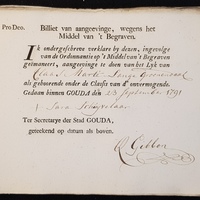 Pro Deo.
Billiet van aangeevinge, wegens het
Middel van 't Begraven.
Ik ondergeschreve verklare by dezen, ingevolge
van de Ordonnantie op 't Middel van 't Begraven
geëmaneert, aangeevinge te doen van het Lyk van
als gehoorende onder de Classis van d' onvermogende.
Gedaan binnen GOUDA den 23 September 1791
Ter Secretarye der Stad GOUDA,
geteekend op datum als boven.